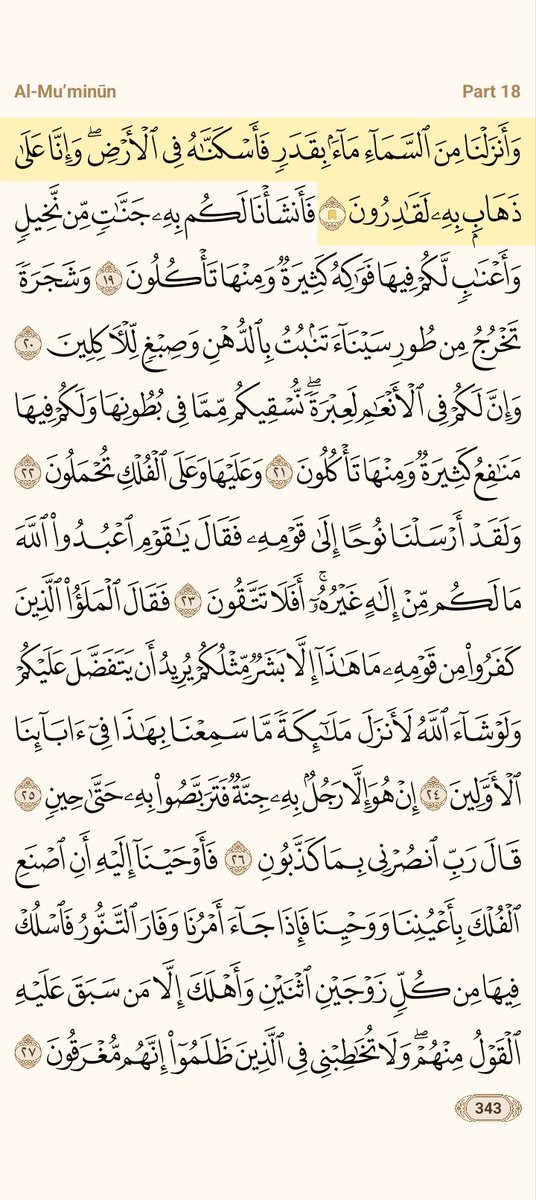 Al-Mu’minūn
Part 18
وَأَنزَلْنَا مِنَ ٱلسَّمَآءِ مَآءًۢ بِقَدَرٍ فَأَسْكَنَّـٰهُ فِى ٱلْأَرْضِ ۖ وَإِنَّا عَلَىٰ
ذَهَابٍۭ بِهِۦ لَقَـٰدِرُونَ فَأَنشَأْنَا لَكُم بِهِۦ جَنَّـٰتٍ مِّن نَّخِيلٍ
وَأَعْنَـٰبٍ لَّكُمْ فِيهَا فَوَٰكِهُ كَثِيرَةٌ وَمِنْهَا تَأْكُلُونَ ١٩ وَشَجَرَةً
تَخْرُجُ مِن طُورِ سَيْنَآءَ تَنۢبُتُ بِٱلدُّهْنِ وَصِبْغٍ لِّلْـَٔاكِلِينَ ٢٠
وَإِنَّ لَكُمْ فِى ٱلْأَنْعَـٰمِ لَعِبْرَةً ۖ نُّسْقِيكُم مِّمَّا فِى بُطُونِهَا وَلَكُمْ فِيهَا
مَنَـٰفِعُ كَثِيرَةٌ وَمِنْهَا تَأْكُلُونَ ٢١ وَعَلَيْهَا وَعَلَى ٱلْفُلْكِ تُحْمَلُونَ ٢٢
وَلَقَدْ أَرْسَلْنَا نُوحًا إِلَىٰ قَوْمِهِۦ فَقَالَ يَـٰقَوْمِ ٱعْبُدُوا۟ ٱللَّهَ
مَا لَكُم مِّنْ إِلَـٰهٍ غَيْرُهُۥٓ ۚ أَفَلَا تَتَّقُونَ ٢٣ فَقَالَ ٱلْمَلَؤُا۟ ٱلَّذِينَ
كَفَرُوا۟ مِن قَوْمِهِۦ مَا هَـٰذَآ إِلَّا بَشَرٌ مِّثْلُكُمْ يُرِيدُ أَن يَتَفَضَّلَ عَلَيْكُمْ
وَلَوْ شَآءَ ٱللَّهُ لَأَنزَلَ مَلَـٰٓئِكَةً مَّا سَمِعْنَا بِهَـٰذَا فِىٓ ءَابَآئِنَا
ٱلْأَوَّلِينَ ٢٤ إِنْ هُوَ إِلَّا رَجُلٌۢ بِهِۦ جِنَّةٌ فَتَرَبَّصُوا۟ بِهِۦ حَتَّىٰ حِينٍ ٢٥
قَالَ رَبِّ ٱنصُرْنِى بِمَا كَذَّبُونِ ٢٦ فَأَوْحَيْنَآ إِلَيْهِ أَنِ ٱصْنَعِ
ٱلْفُلْكَ بِأَعْيُنِنَا وَوَحْيِنَا فَإِذَا جَآءَ أَمْرُنَا وَفَارَ ٱلتَّنُّورُ فَٱسْلُكْ
فِيهَا مِن كُلٍّ زَوْجَيْنِ ٱثْنَيْنِ وَأَهْلَكَ إِلَّا مَن سَبَقَ عَلَيْهِ
ٱلْقَوْلُ مِنْهُمْ ۖ وَلَا تُخَـٰطِبْنِى فِى ٱلَّذِينَ ظَلَمُوٓا۟ إِنَّهُم مُّغْرَقُونَ ٢٧
343